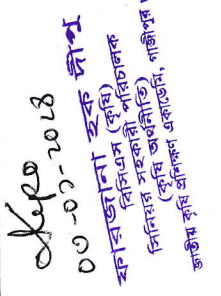 ০৩-০১-২০২৪
ফারজানা হক দীপু
বিসিএস (কৃষি)
সিনিয়র সহকারী পরিচালক
(কৃষি অর্থনীতি)
জাতীয় কৃষি প্রশিক্ষণ একাডেমি, গাজীপুর।